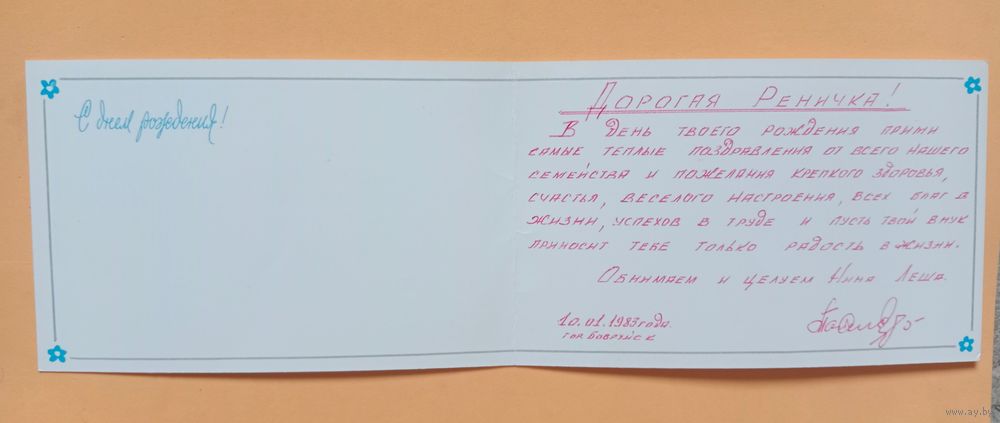 С днем рождения!
Дорогая Реничка!
В день твоего рождения прими
самые теплые поздравления от всего нашего
семейства и пожелания крепкого здоровья,
счастья, веселого настроения, всех благ в
жизни, успехов в труде и пусть твой внук
приносит тебе только радость в жизни.
Обнимаем и целуем Нина Леша.
10.01.1983 года.
гор. Бобруйск
www.ay.by